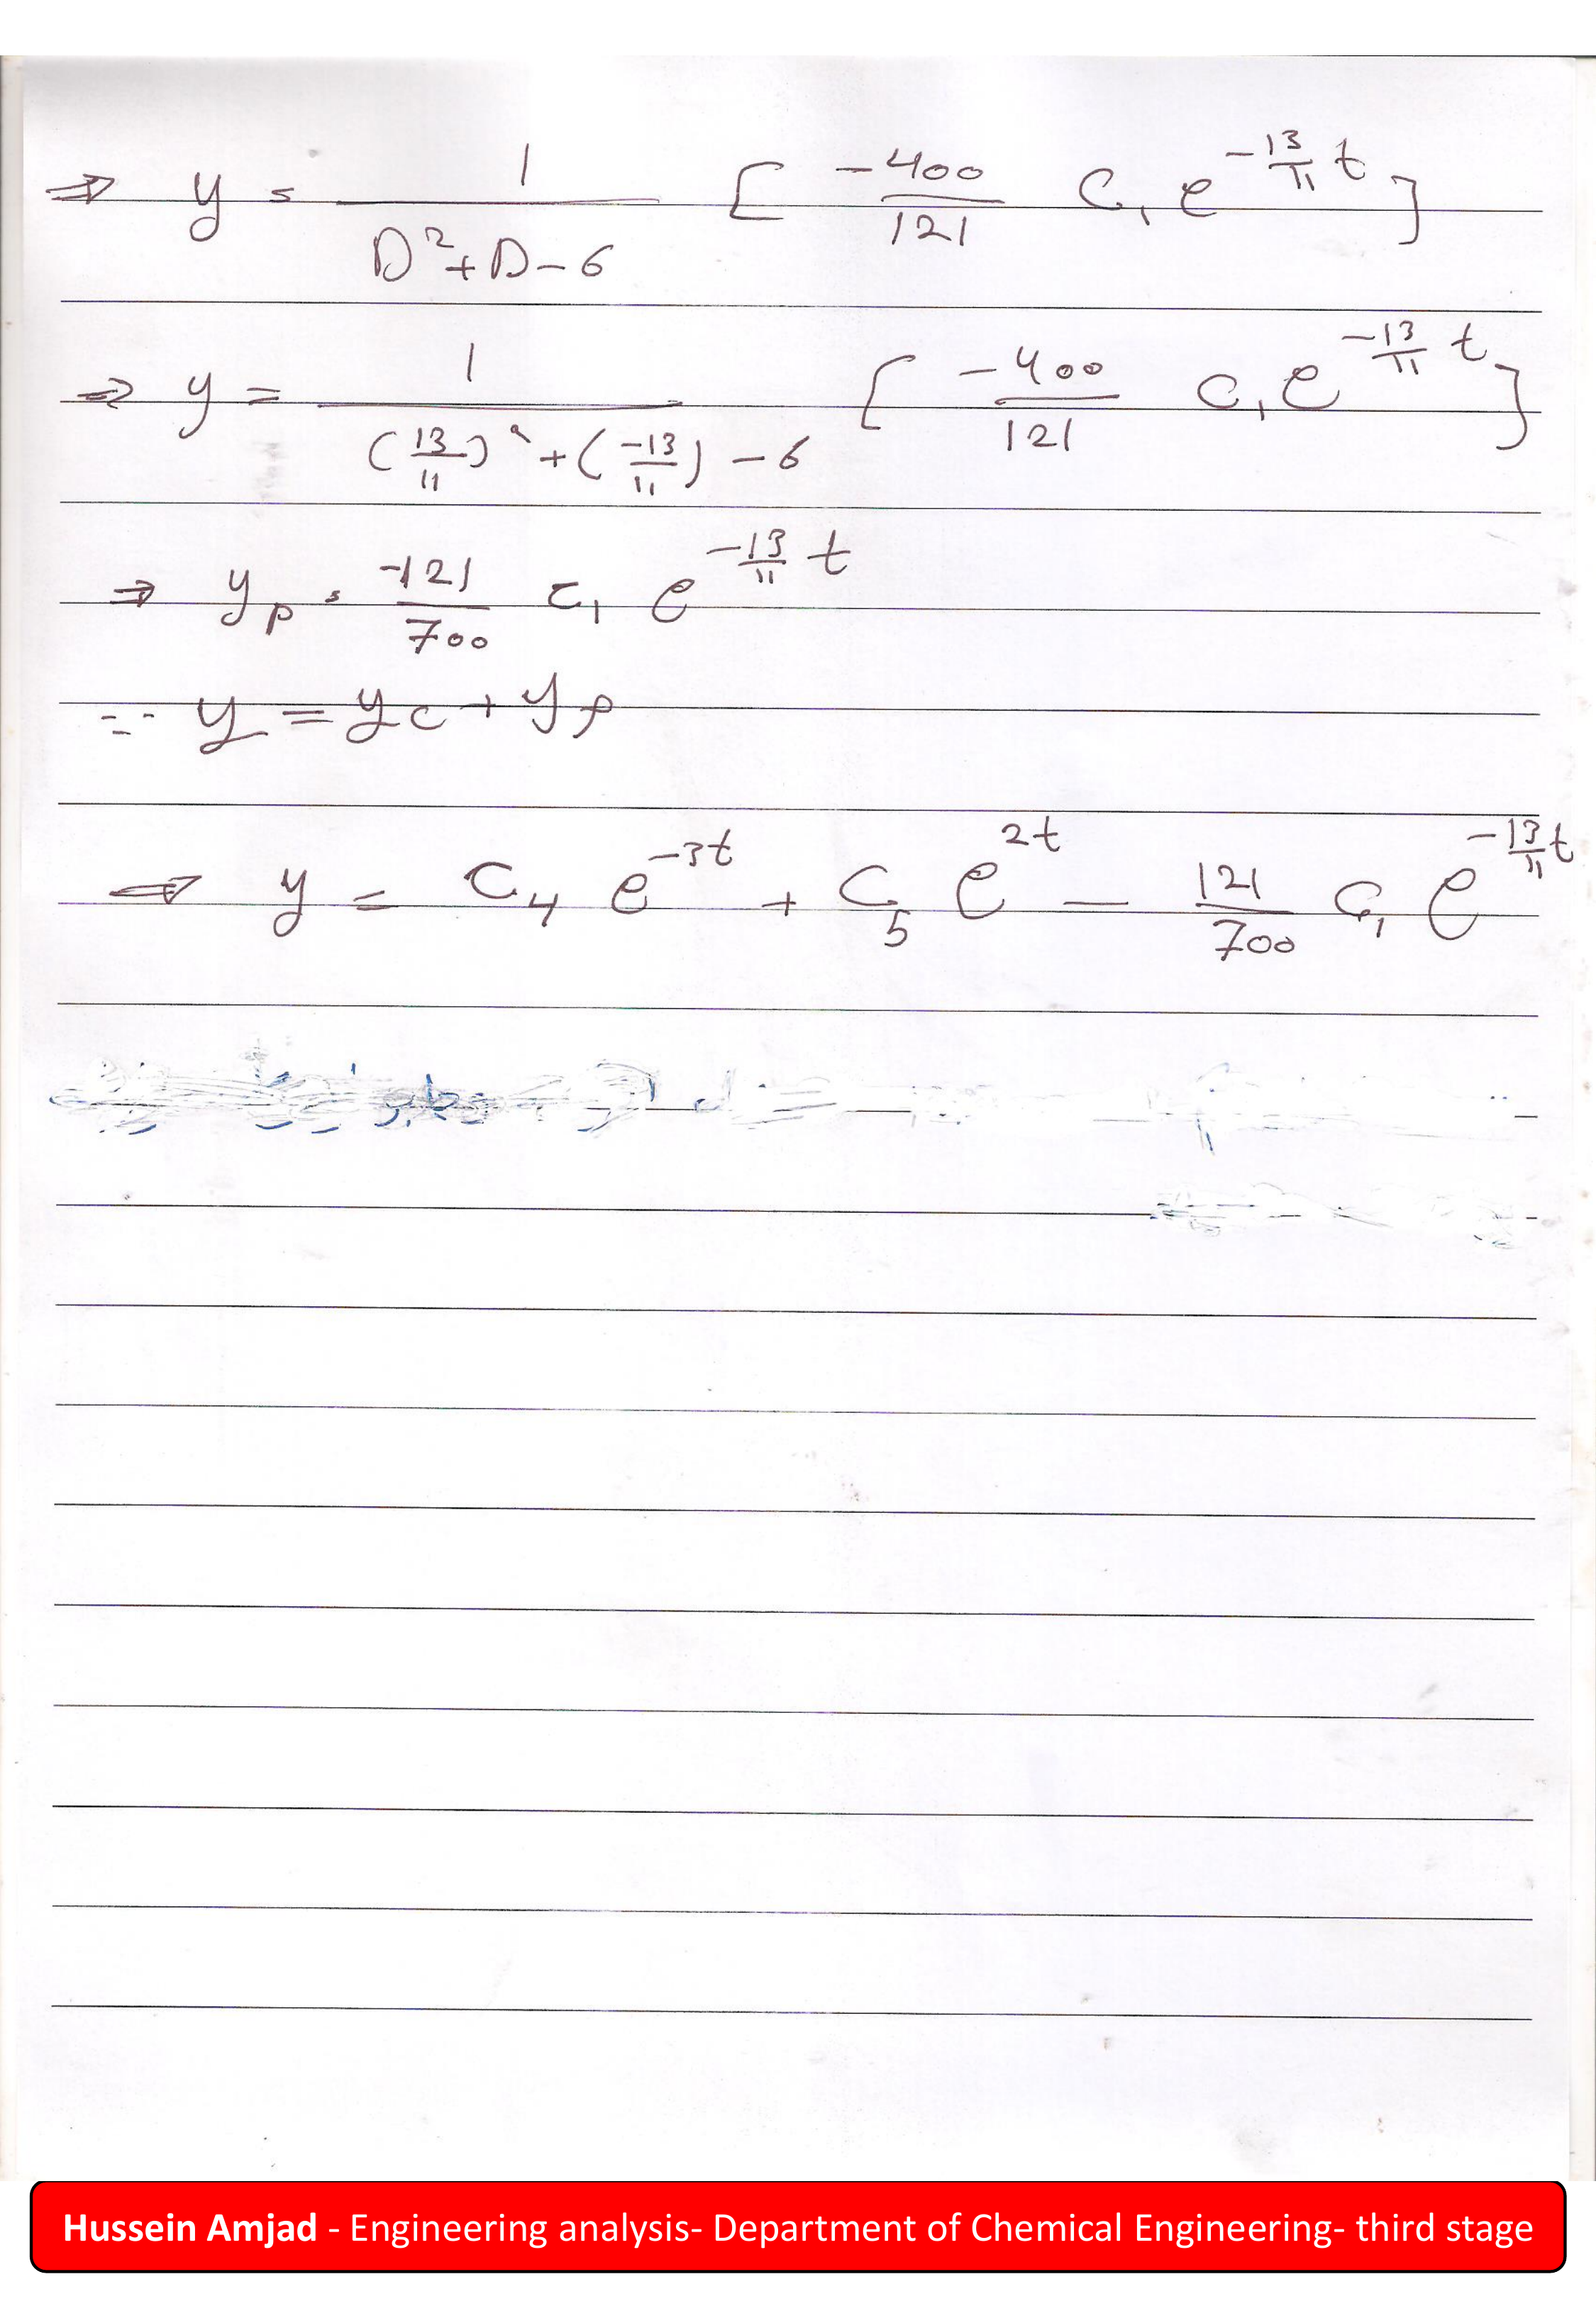 ⇒ y = 1 / (D² + D - 6) [ -400/121 C₁ e^(-13/11 t) ]
⇒ y = 1 / ((13/11)² + (-13/11) - 6) [ -400/121 C₁ e^(-13/11 t) ]
⇒ yp = -121/700 C₁ e^(-13/11 t)
∵ y = yc + yp
⇒ y = C₄ e^(-3t) + C₅ e^(2t) - 121/700 C₁ e^(-13/11 t)
Hussein Amjad - Engineering analysis- Department of Chemical Engineering- third stage